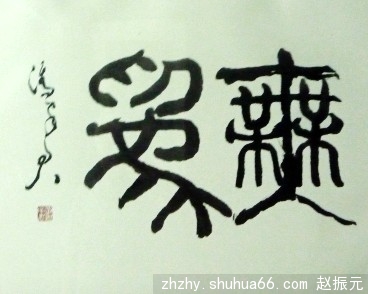 無爲
zhzhy.shuhua66.com 赵振元